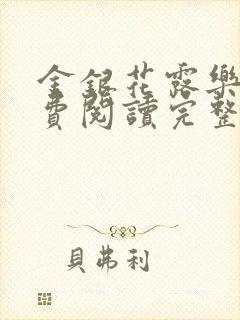 金銀花露樂
費閱讀完整
貝弗利